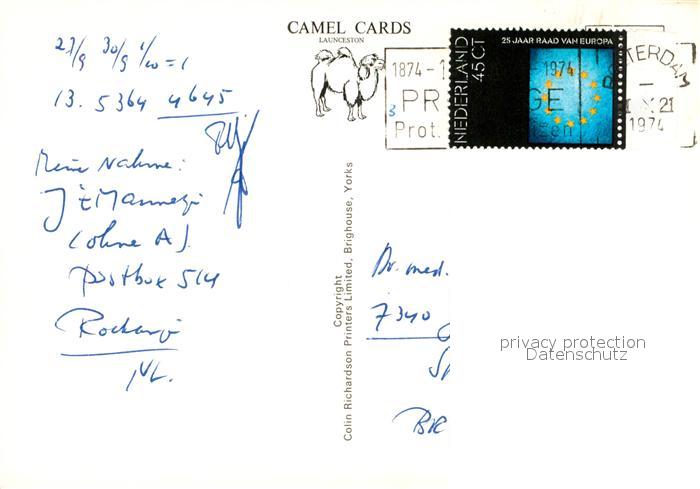 CAMEL CARDS
LAUNCESTON
27/9 30/9 1/10 = 1
13. 5364 4645
Meine Nahme:
(ohne A).
Postbox 514
NL.
Copyright
Colin Richardson Printers Limited, Brighouse, Yorks
NEDERLAND
45 CT
25 JAAR RAAD VAN EUROPA
1874 - 1974
Prot.
TERDAM
21
1974
Dr. med.
7340
privacy protection
Datenschutz